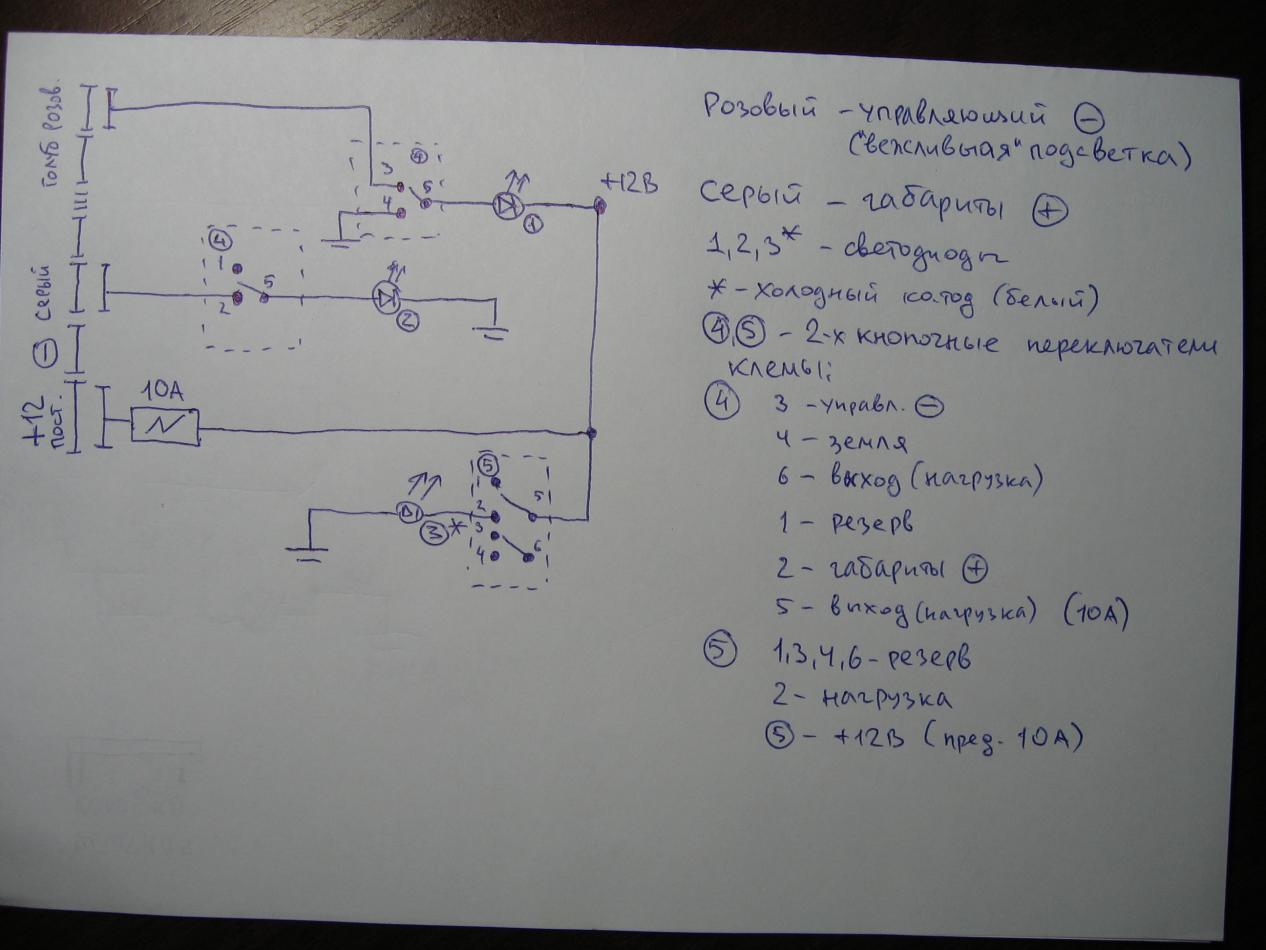 розов.
голуб
серый
⊖
+12
пост.
10А
④
3
4
5
①
+12В
④
1
2
5
②
⑤
2
3
4
5
6
③*
Розовый – управляющий ⊖
("вежливыая" подсветка)
Серый – габариты ⊕
1,2,3* – светодиоды
* – холодный катод (белый)
④,⑤ – 2-х кнопочные переключатели
клемы:
④ 3 – управл. ⊖
4 – земля
6 – выход (нагрузка)
1 – резерв
2 – габариты ⊕
5 – выход (нагрузка) (10А)
⑤ 1,3,4,6 – резерв
2 – нагрузка
⑤ – +12В (пред. 10А)